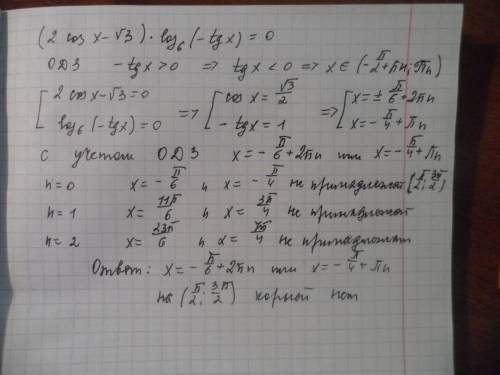 (2 cos x - √3) · log₆(-tg x) = 0
ОДЗ -tg x > 0 => tg x < 0 => x ∈ (-π/2 + πn; πn)
[ 2 cos x - √3 = 0 => [ cos x = √3/2 => [ x = ± π/6 + 2πn
log₆(-tg x) = 0 - tg x = 1 x = - π/4 + πn
с учетом ОДЗ x = - π/6 + 2πn или x = - π/4 + πn
n = 0 x = - π/6 и x = - π/4 не принадлежат [π/2; 3π/2)
n = 1 x = 11π/6 и x = 3π/4 не принадлежат
n = 2 x = 23π/6 и x = 7π/4 не принадлежат
Ответ: x = - π/6 + 2πn или x = - π/4 + πn
на (π/2; 3π/2) корней нет